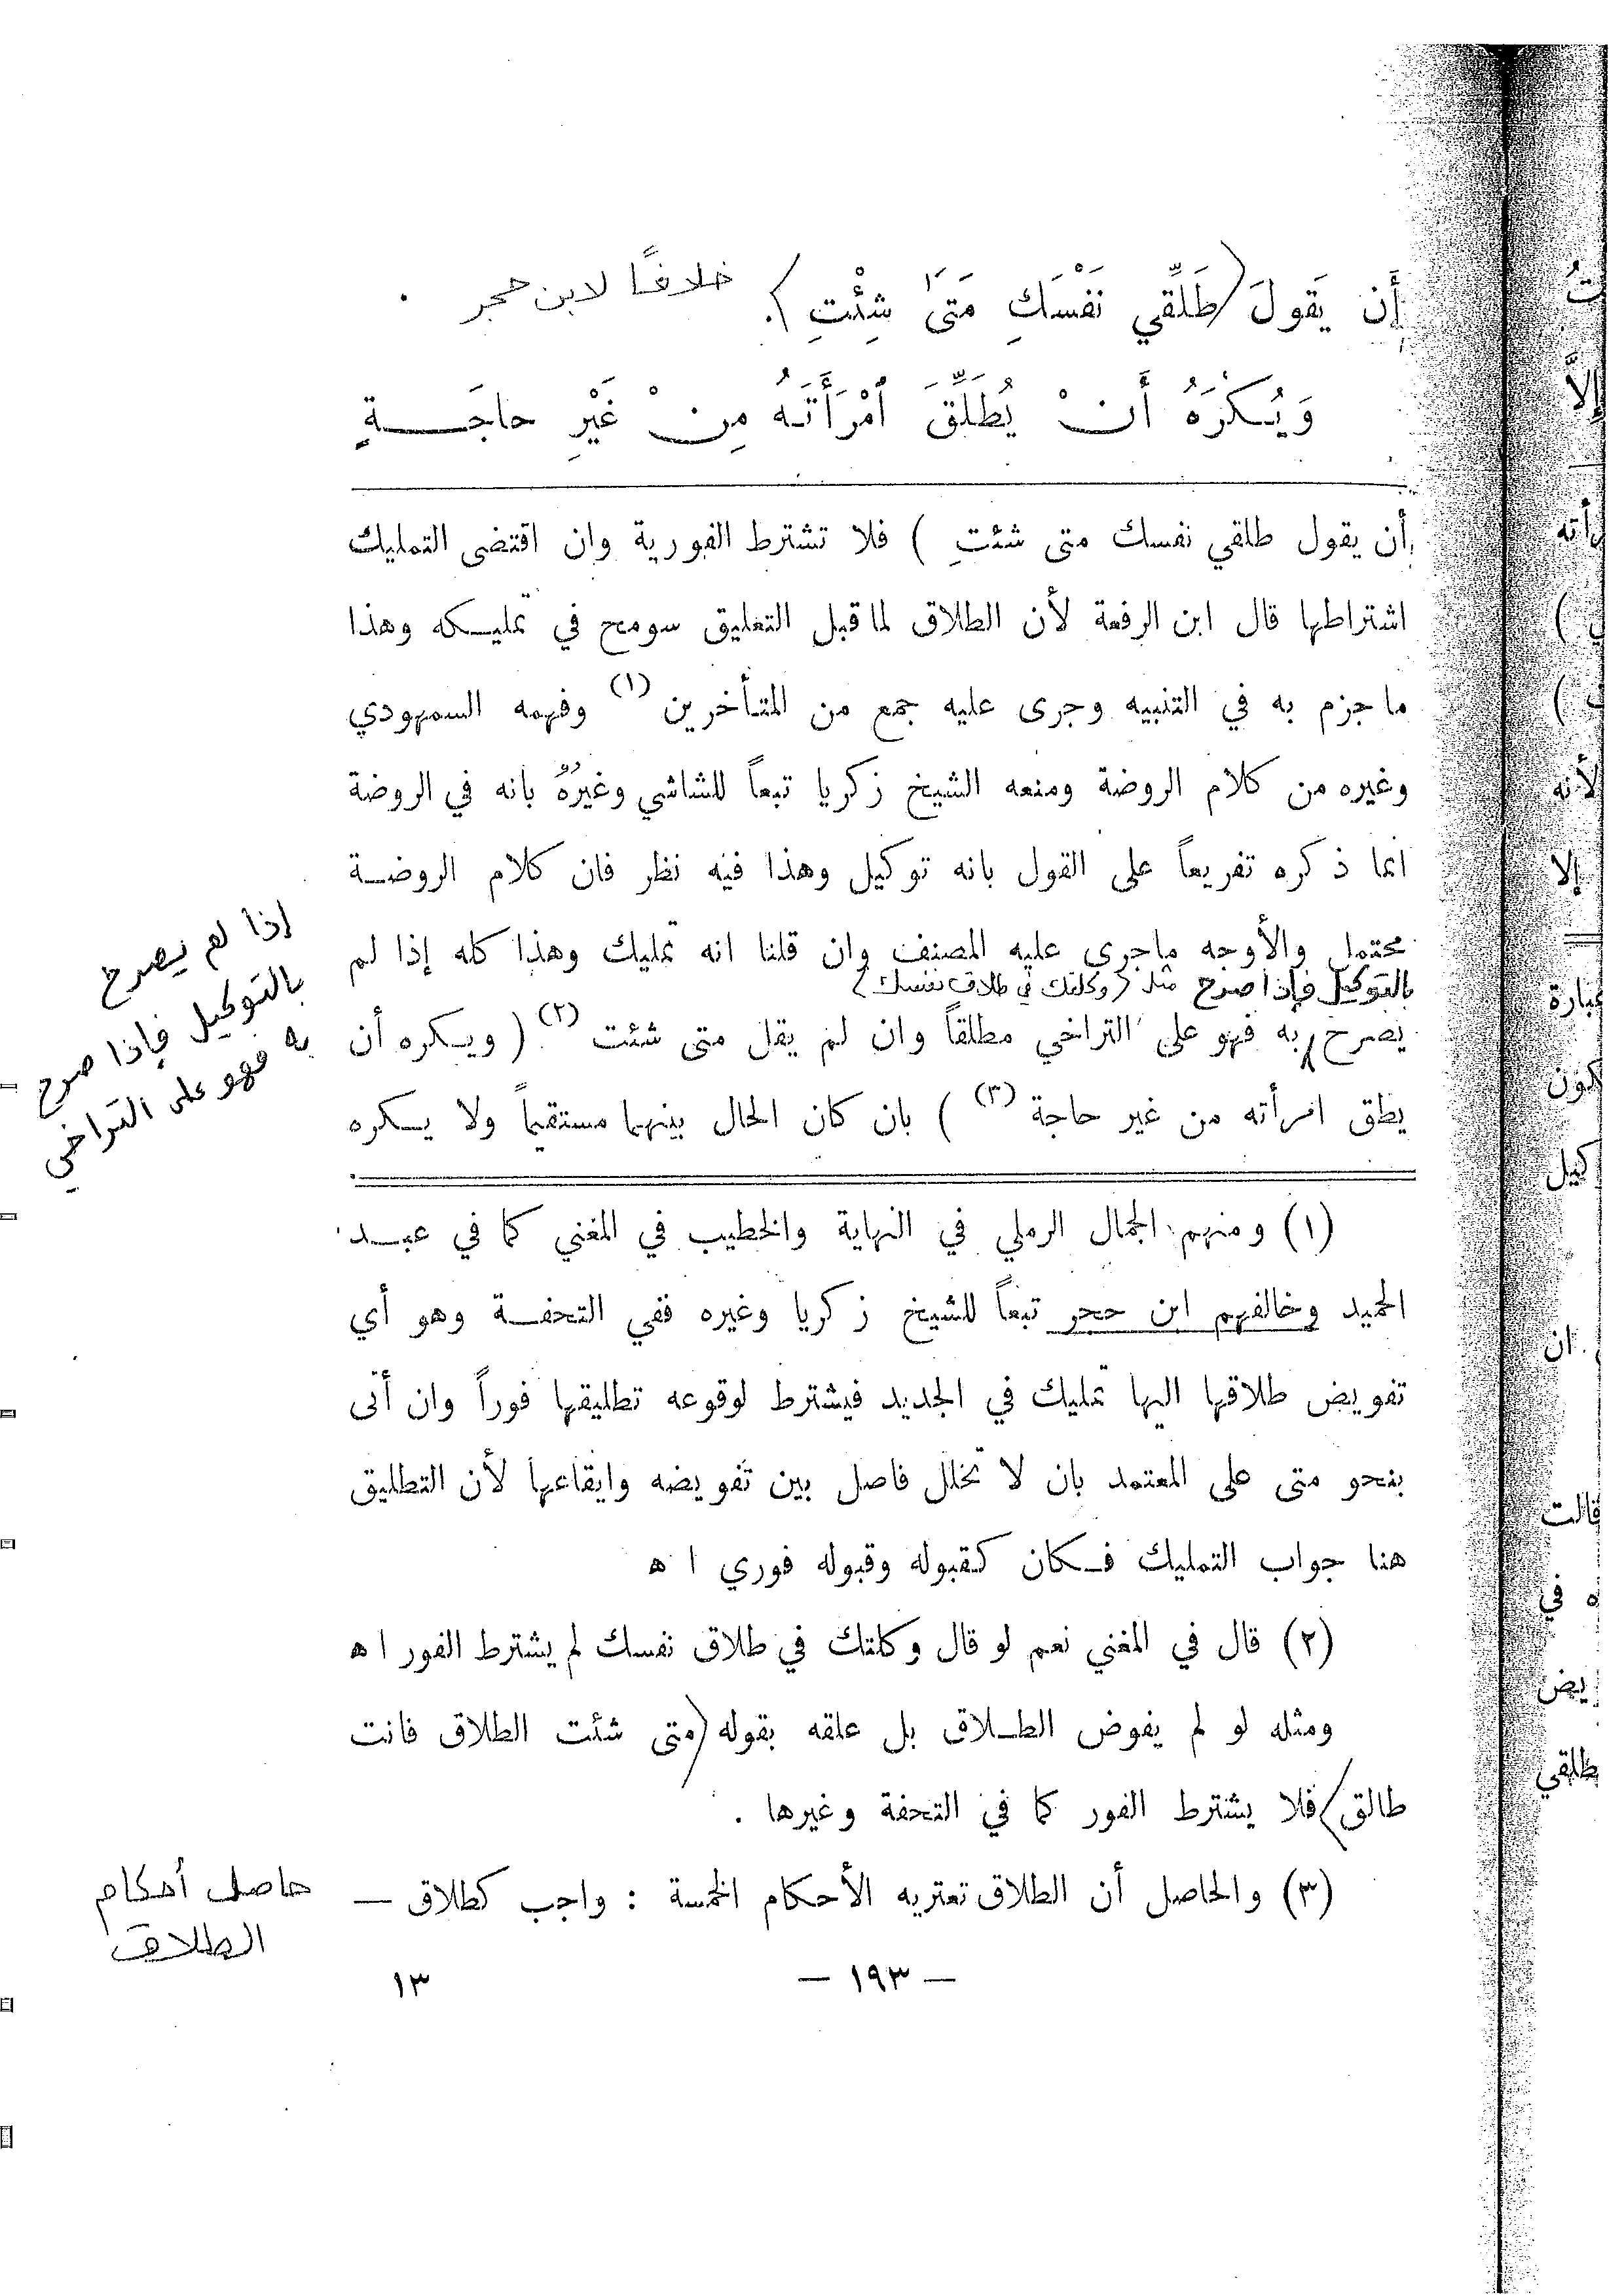 أَن يَقولَ (طَلِّقي نَفْسَكِ مَتىٰ شِئْتِ). خلافًا لابن حجر
وَيُكْرَهُ أَنْ يُطَلِّقَ ٱمْرَأَتَهُ مِنْ غَيْرِ حاجَةٍ
أن يقول طلقي نفسك متى شئتِ ) فلا تشترط الفورية وان اقتضى التمليك
اشتراطها قال ابن الرفعة لأن الطلاق لما قبل التعليق سومح في تمليكه وهذا
ما جزم به في التنبيه وجرى عليه جمع من المتأخرين (١) وفهمه السمهودي
وغيره من كلام الروضة ومنعه الشيخ زكريا تبعاً للشاشي وغيرُهُ بانه في الروضة
انما ذكره تفريعاً على القول بانه توكيل وهذا فيه نظر فان كلام الروضة
محتمل والأوجه ماجرى عليه المصنف وان قلنا انه تمليك وهذا كله إذا لم
بالتوكيل فإذا صرح مثل (وكلتك في طلاق نفسك)
يصرح به فهو على التراخي مطلقاً وان لم يقل متى شئت (٢) ( ويكره أن
يطق امرأته من غير حاجة (٣) ) بان كان الحال بينهما مستقيماً ولا يكره
إذا لم يصرح
بالتوكيل فإذا صرح
به فهو على التراخي
(١) ومنهم الجمال الرملي في النهاية والخطيب في المغني كما في عبد
الحميد وخالفهم ابن حجر تبعاً للشيخ زكريا وغيره ففي التحفة وهو أي
تفويض طلاقها اليها تمليك في الجديد فيشترط لوقوعه تطليقها فوراً وان أتى
بنحو متى على المعتمد بان لا تخلل فاصل بين تفويضه وايقاعها لأن التطليق
هنا جواب التمليك فكان كقبوله وقبوله فوري ا ه
(٢) قال في المغني نعم لو قال وكلتك في طلاق نفسك لم يشترط الفور ا ه
ومثله لو لم يفوض الطلاق بل علقه بقوله (متى شئت الطلاق فانت
طالق) فلا يشترط الفور كما في التحفة وغيرها .
(٣) والحاصل أن الطلاق تعتريه الأحكام الخمسة : واجب كطلاق —
حاصل أحكام
الطلاق
— ١٩٣ —
١٣